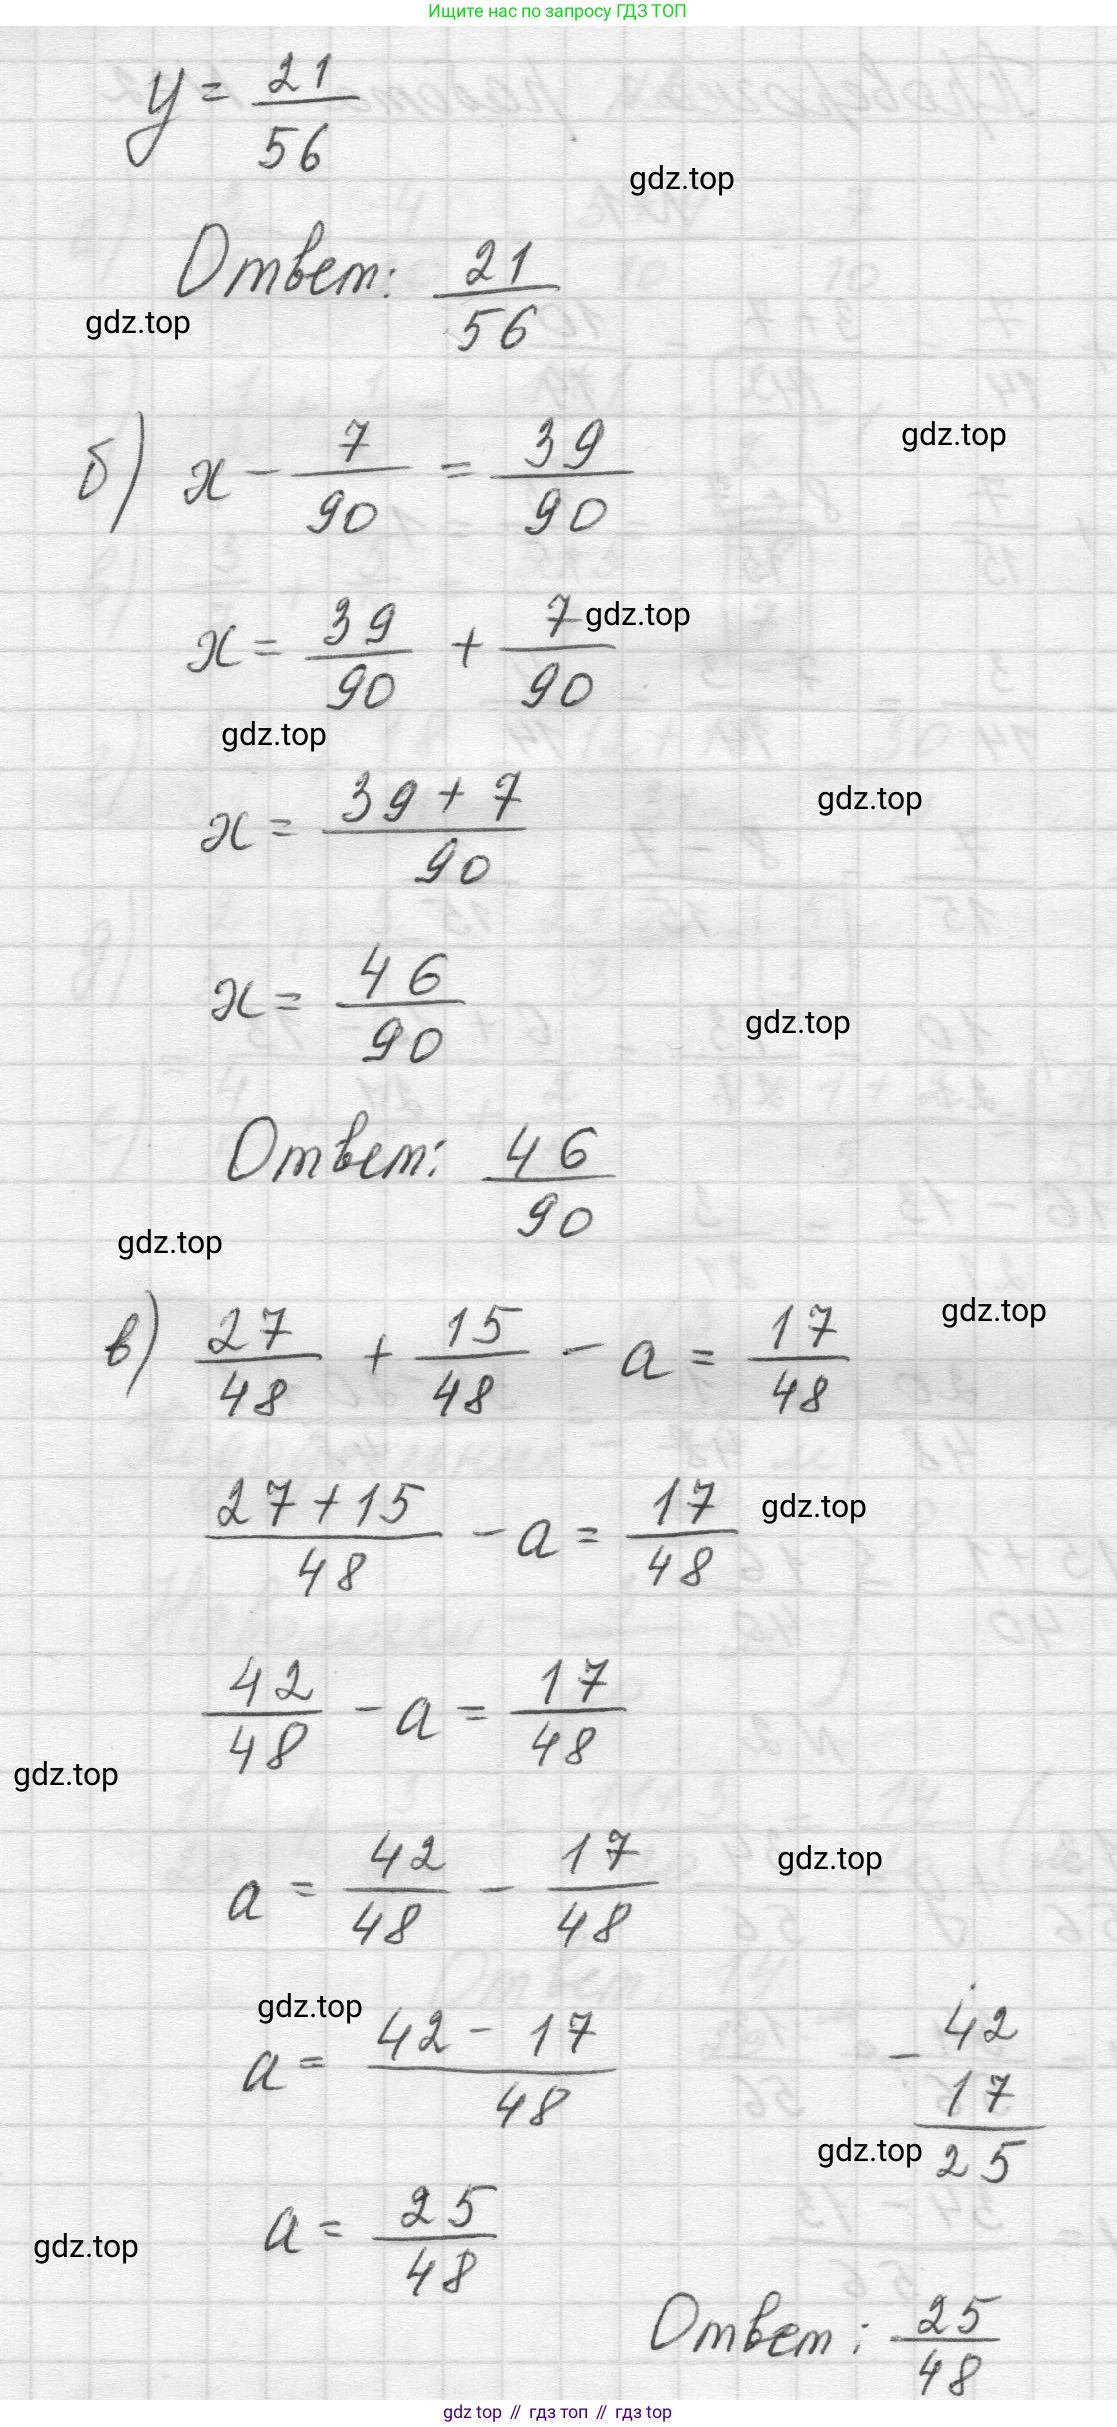 Ищите нас по запросу ГДЗ ТОП
y = 21/56
gdz.top
Ответ: 21/56
gdz.top
б) x - 7/90 = 39/90
gdz.top
x = 39/90 + 7/90
gdz.top
gdz.top
x = (39 + 7)/90
gdz.top
x = 46/90
gdz.top
Ответ: 46/90
gdz.top
в) 27/48 + 15/48 - a = 17/48
gdz.top
(27 + 15)/48 - a = 17/48
gdz.top
42/48 - a = 17/48
gdz.top
a = 42/48 - 17/48
gdz.top
gdz.top
a = (42 - 17)/48
- 42
17
25
gdz.top
a = 25/48
gdz.top
Ответ: 25/48
gdz top // гдз топ // гдз top